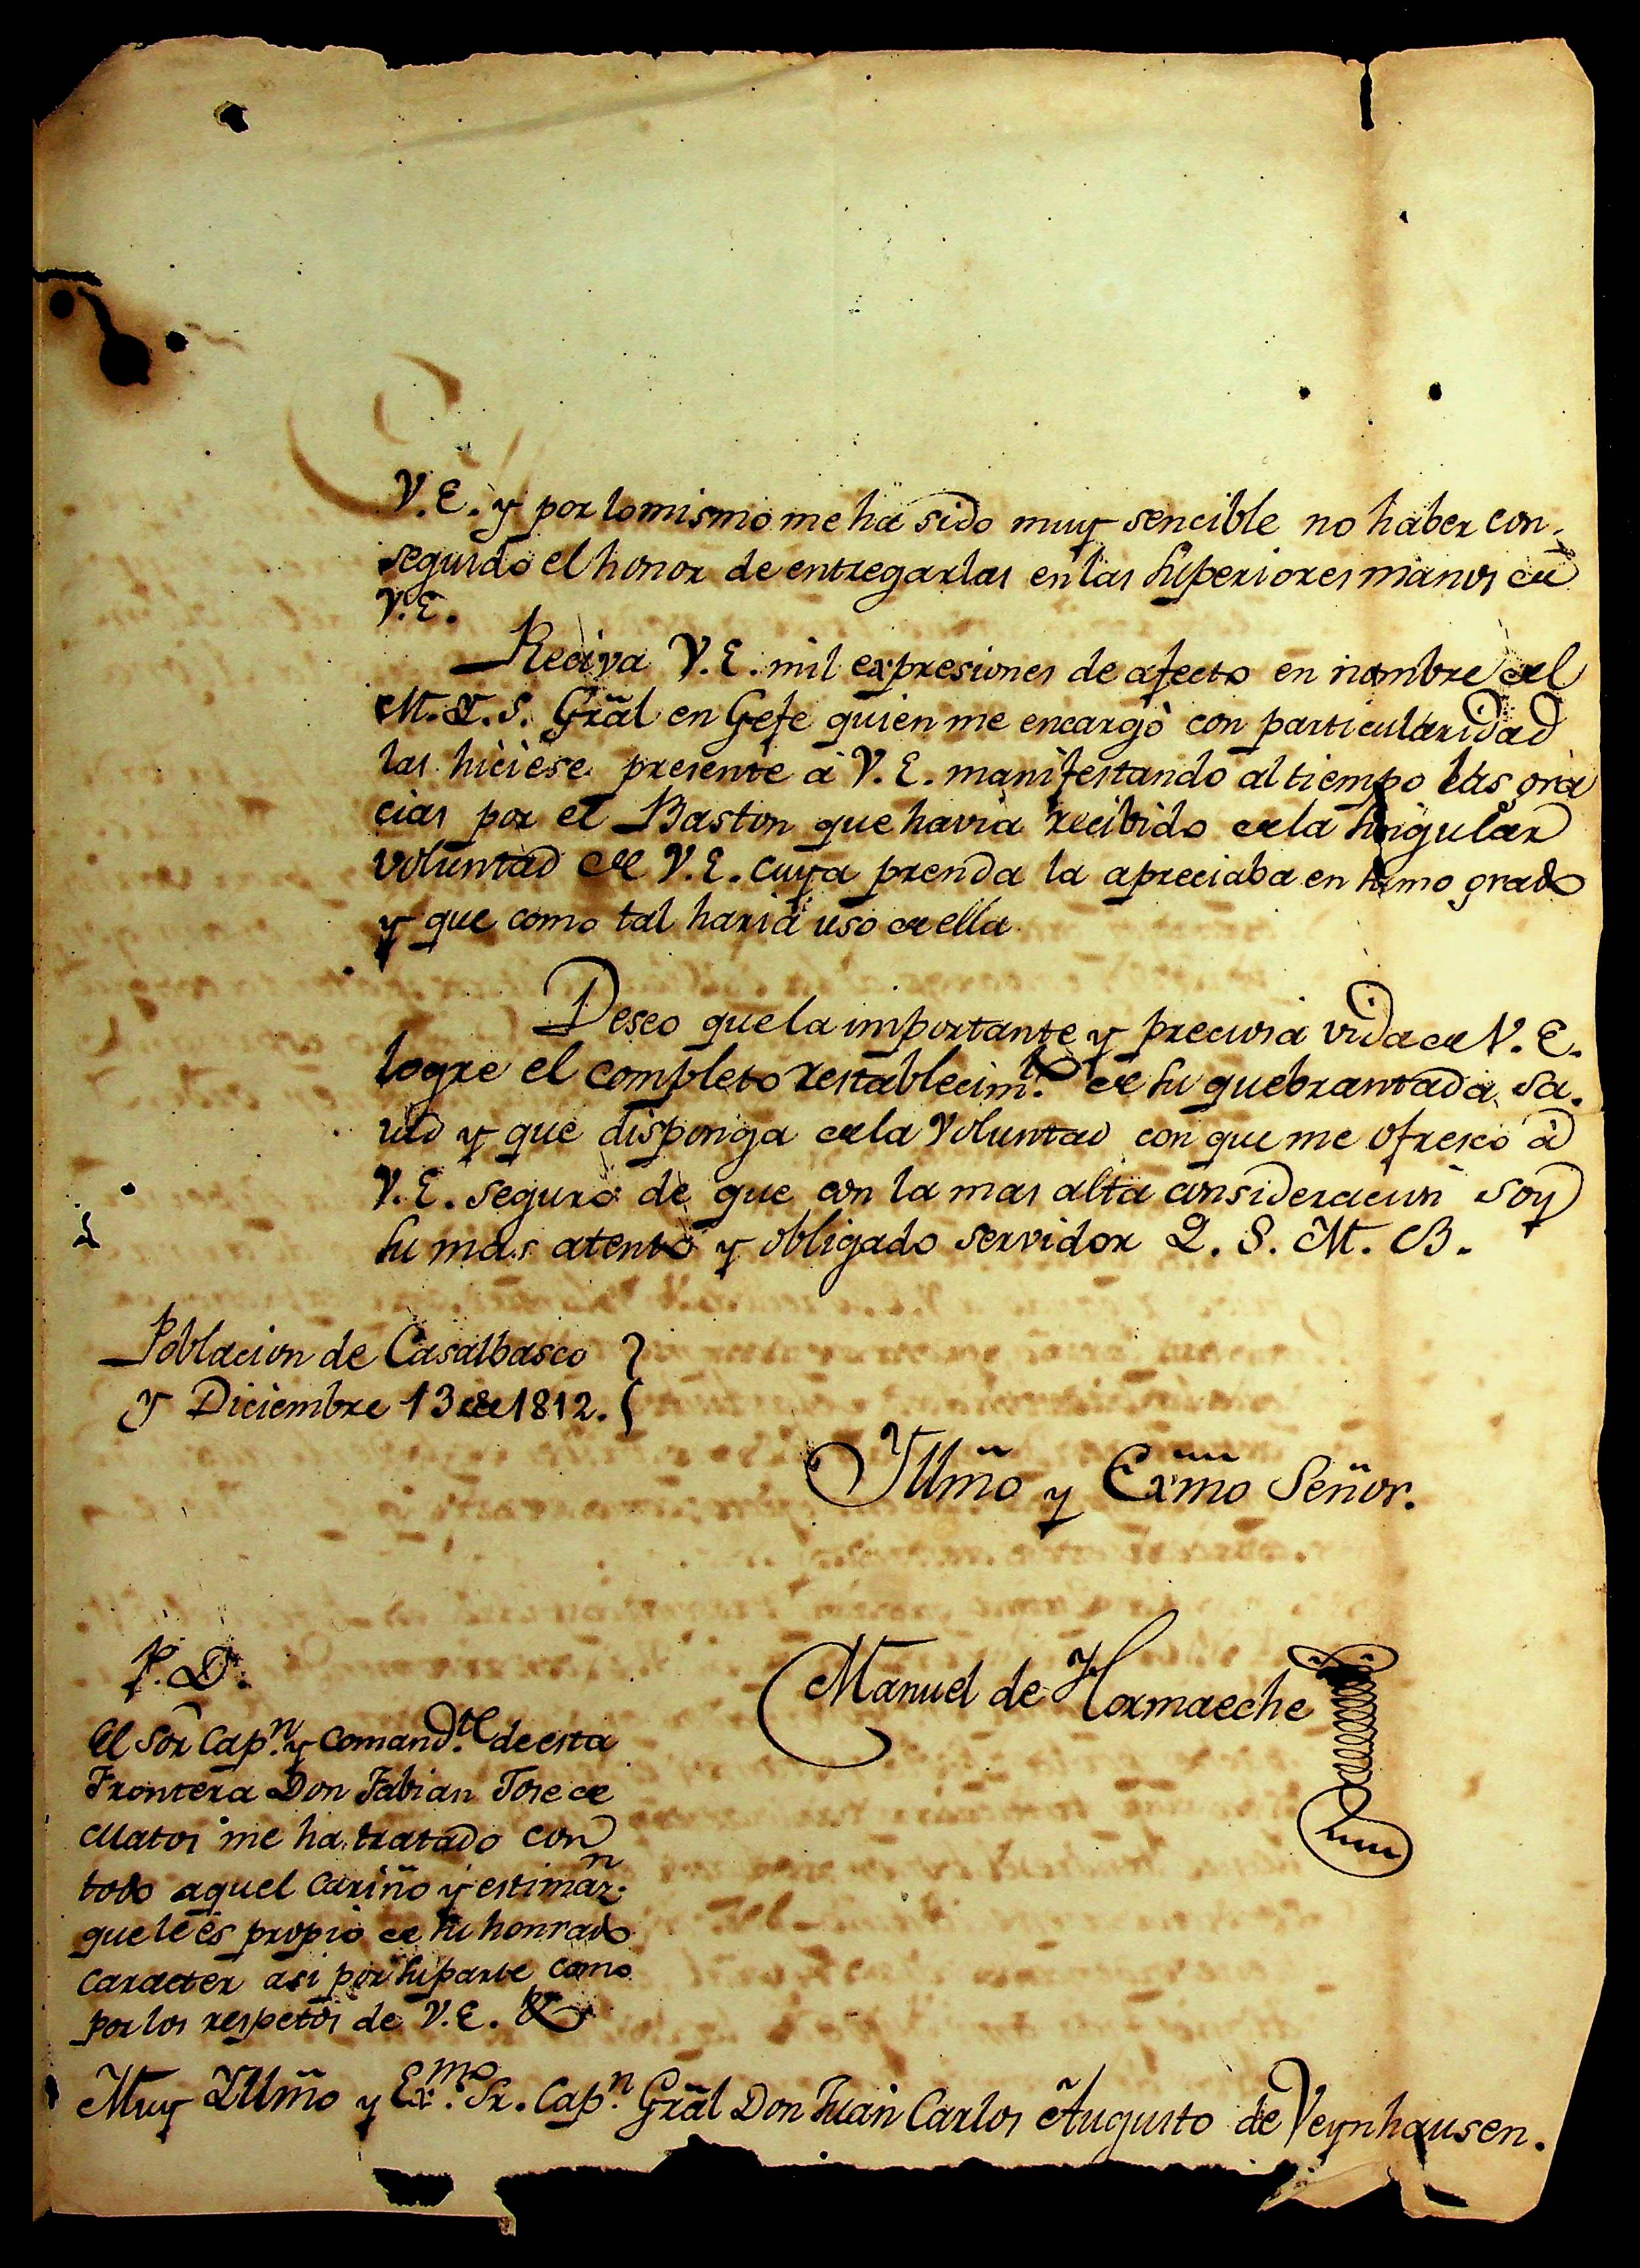 V.E. y por lo mismo me ha sido muy sencible no haber con-
seguido el honor de entregarlas en las Superiores manos de
V.E.
Reciva V.E. mil expresiones de afecto en nombre del
M.I.S. Grãl en Gefe quien me encargò con particularidad
las hiciese presente à V.E. manifestando al tiempo las gra
cias por el Baston que havia recibido de la Singular
voluntad de V.E. cuya prenda la apreciaba en Sumo grado
y que como tal haria uso de ella
Deseo que la importante y preciosa vida de V.E.
logre el completo restablecim.to de Su quebrantada Sa-
lud y que disponga de la Voluntad con que me ofresco à
V.E. seguro de que con la mas alta consideracion soy
Su mas atento y obligado servidor Q.S.M.B.
Poblacion de Casalbasco
y Diciembre 13 de 1812.
Yllm̃o y Exm̃o Señor.
Manuel de Hormaeche
P.D.
El Sõr Cap.n y Comand.te de esta
Frontera Don Fabian Jose de
Matos me ha tratado con
todo aquel cariño y estimaz.n
que le es propio de Su honrado
caracter asi por Su parte como
por los respetos de V.E. &
Muy Yllm̃o y Ex.mo Sr. Cap.n Grãl Don Juan Carlos Augusto de Veynhausen.